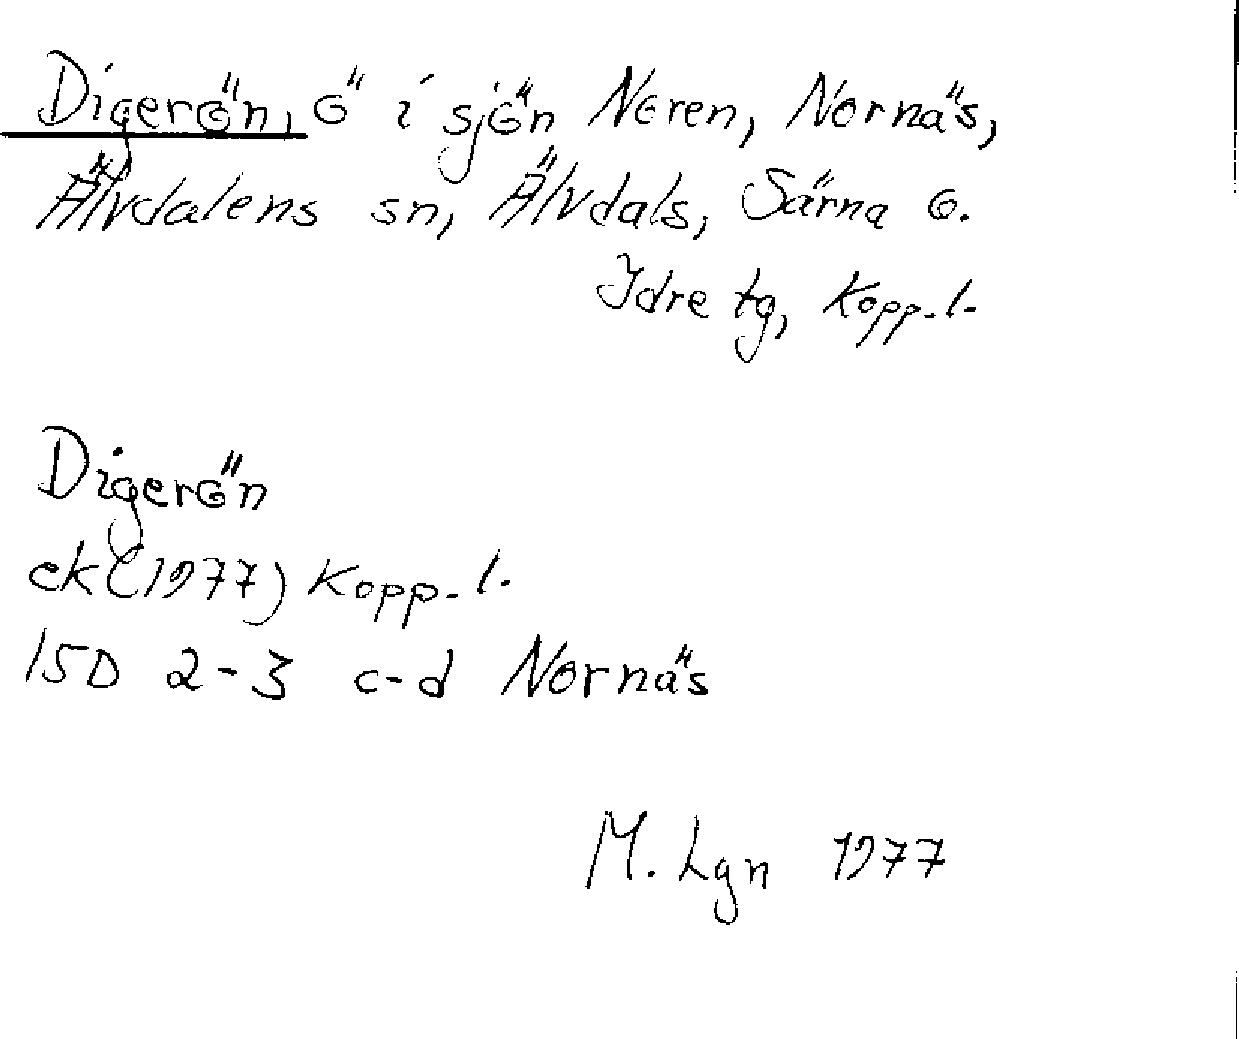 Digerön, ö i sjön Noren, Nornäs,
Älvdalens sn, Älvdals, Särna o.
Idre tg, Kopp. l.
Digerön
ek (1977) Kopp. l.
15D 2-3 c-d Nornäs
M. Lgn 1977